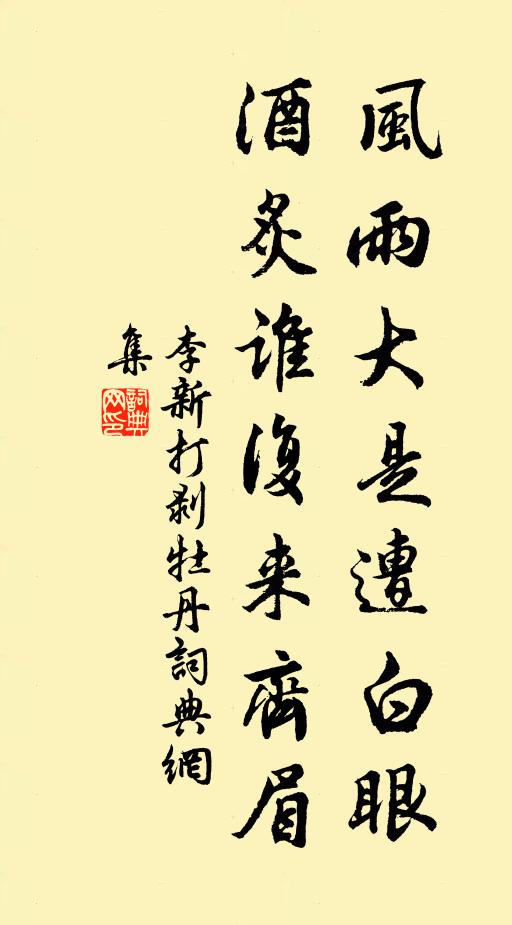 風雨大是遭白眼
酒炙誰復来齊眉
李新打剥牡丹詞典網
集
詞典网印